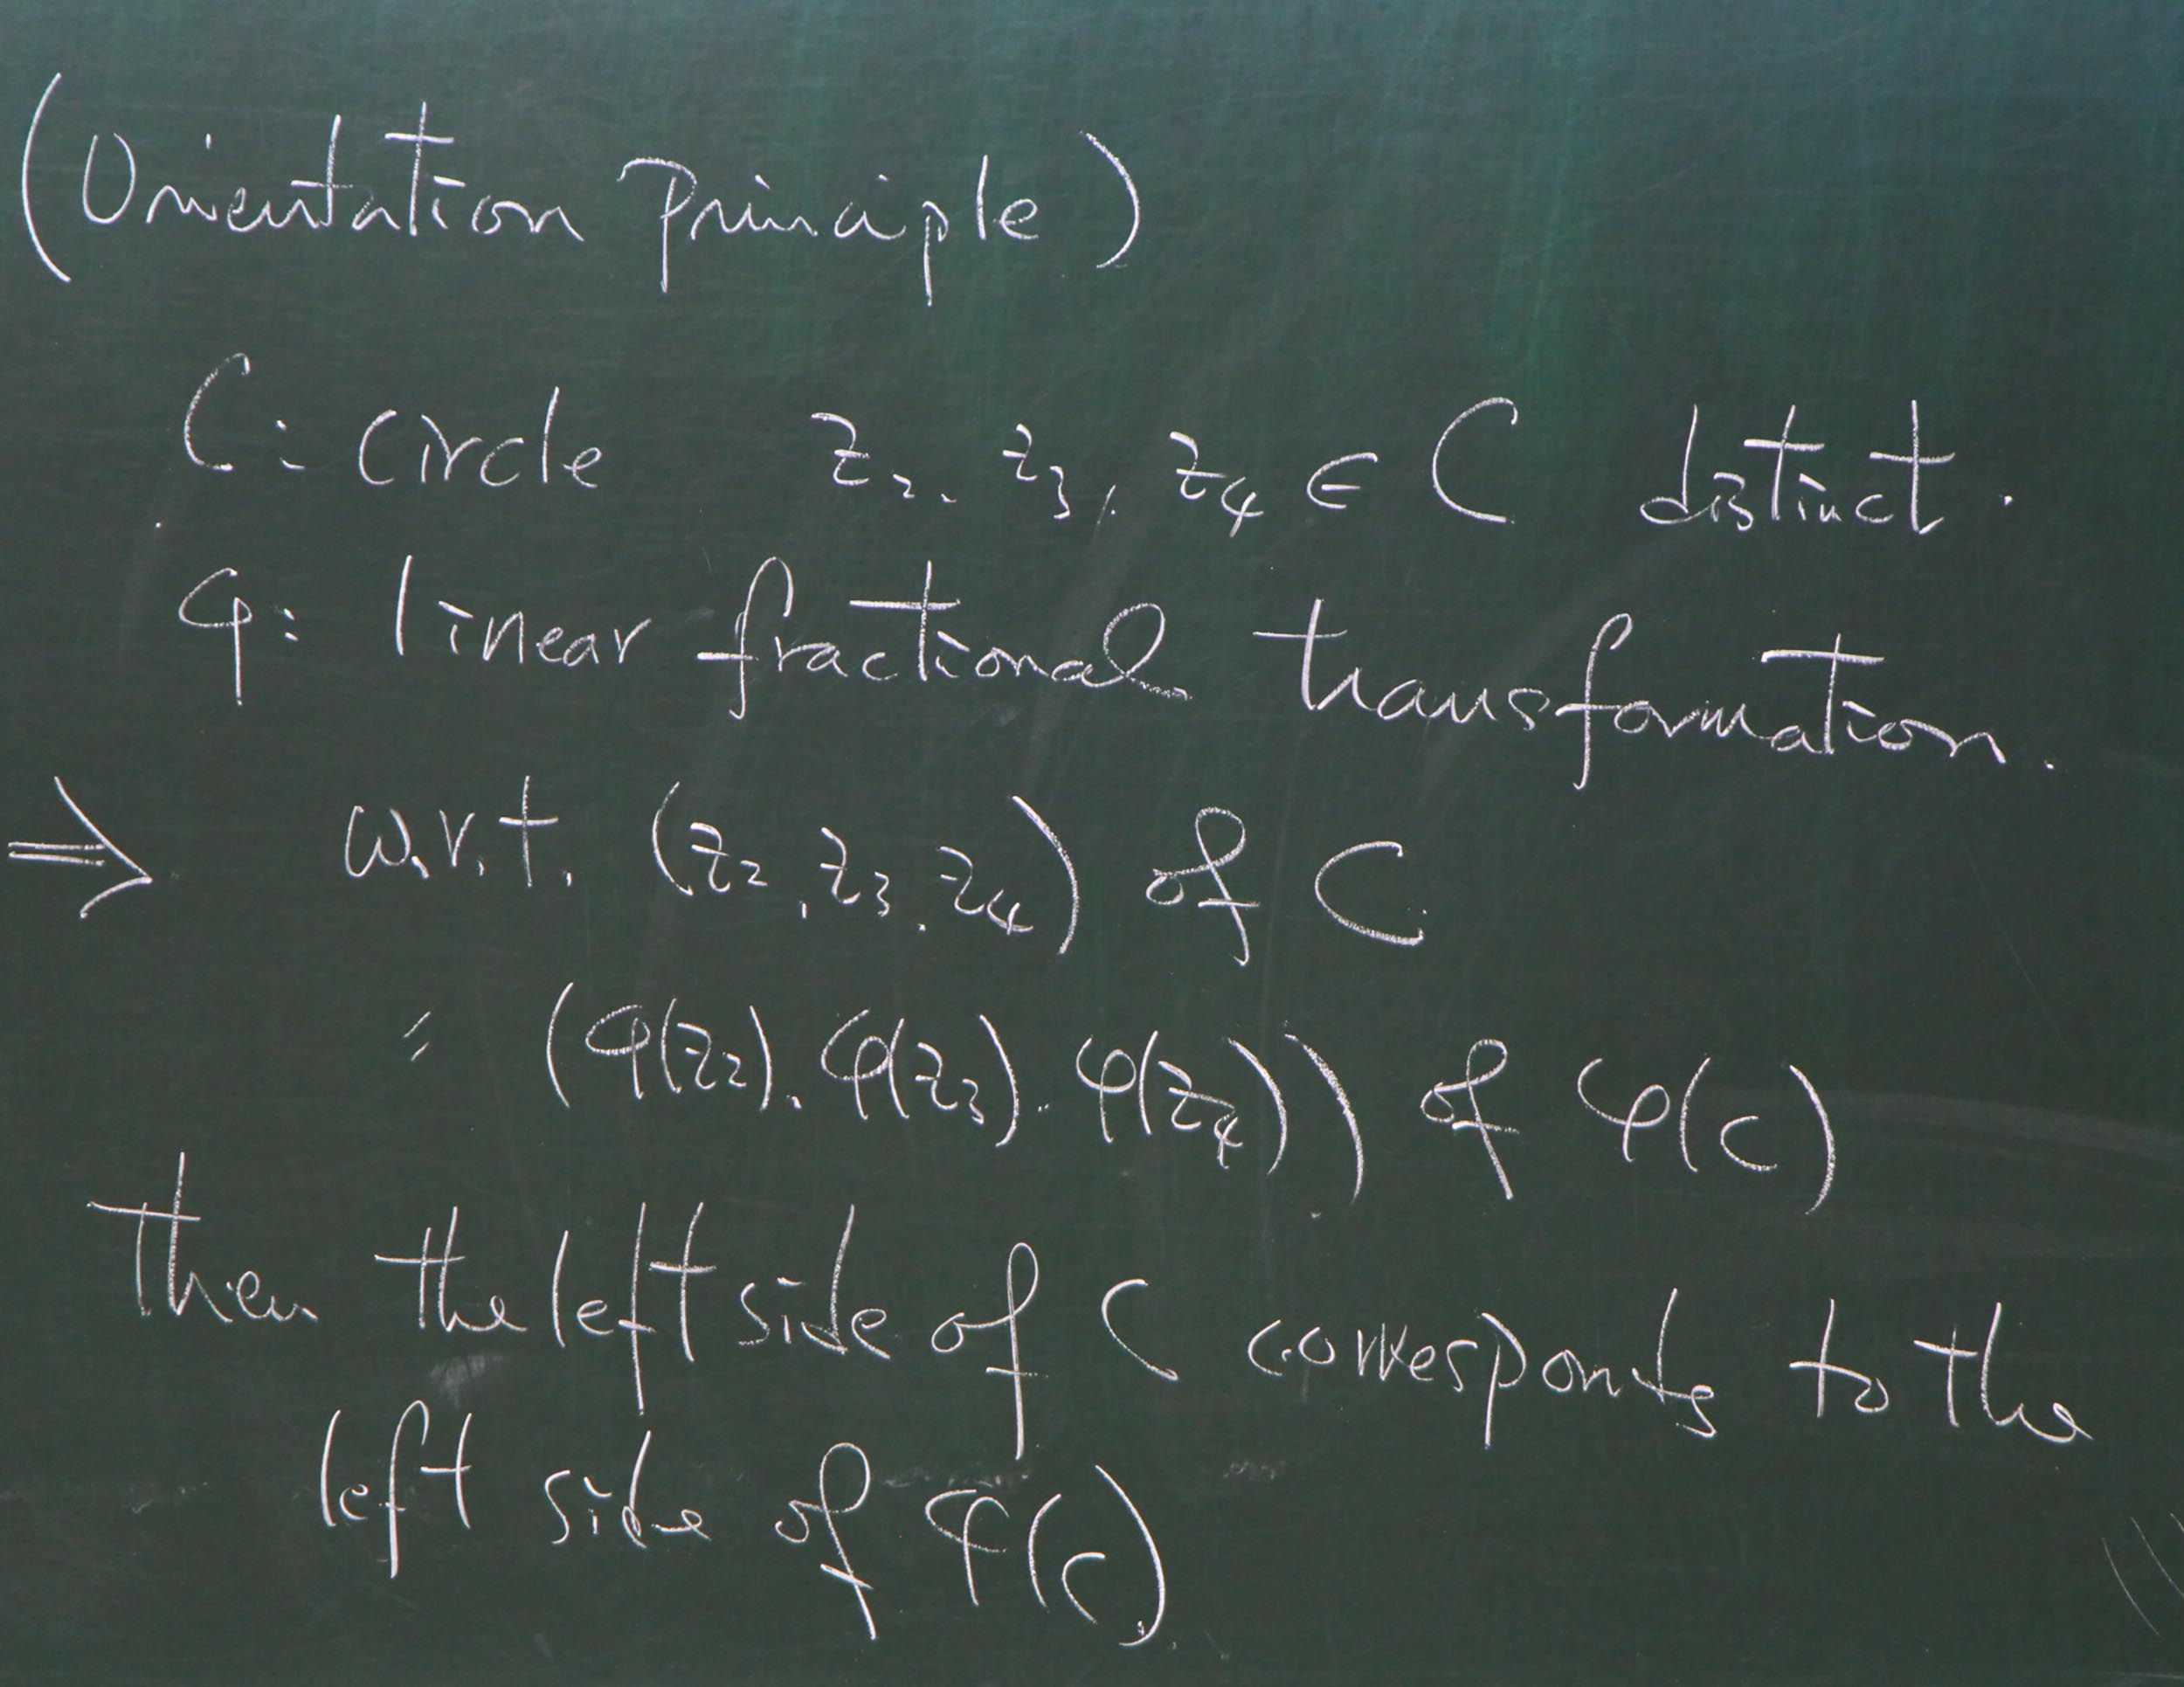 (Orientation Principle)
C: circle z₂, z₃, z₄ ∈ C distinct.
φ: linear fractional transformation.
⇒ w.r.t. (z₂, z₃, z₄) of C
〃 (φ(z₂), φ(z₃), φ(z₄)) of φ(C)
then the left side of C corresponds to the
left side of φ(C).